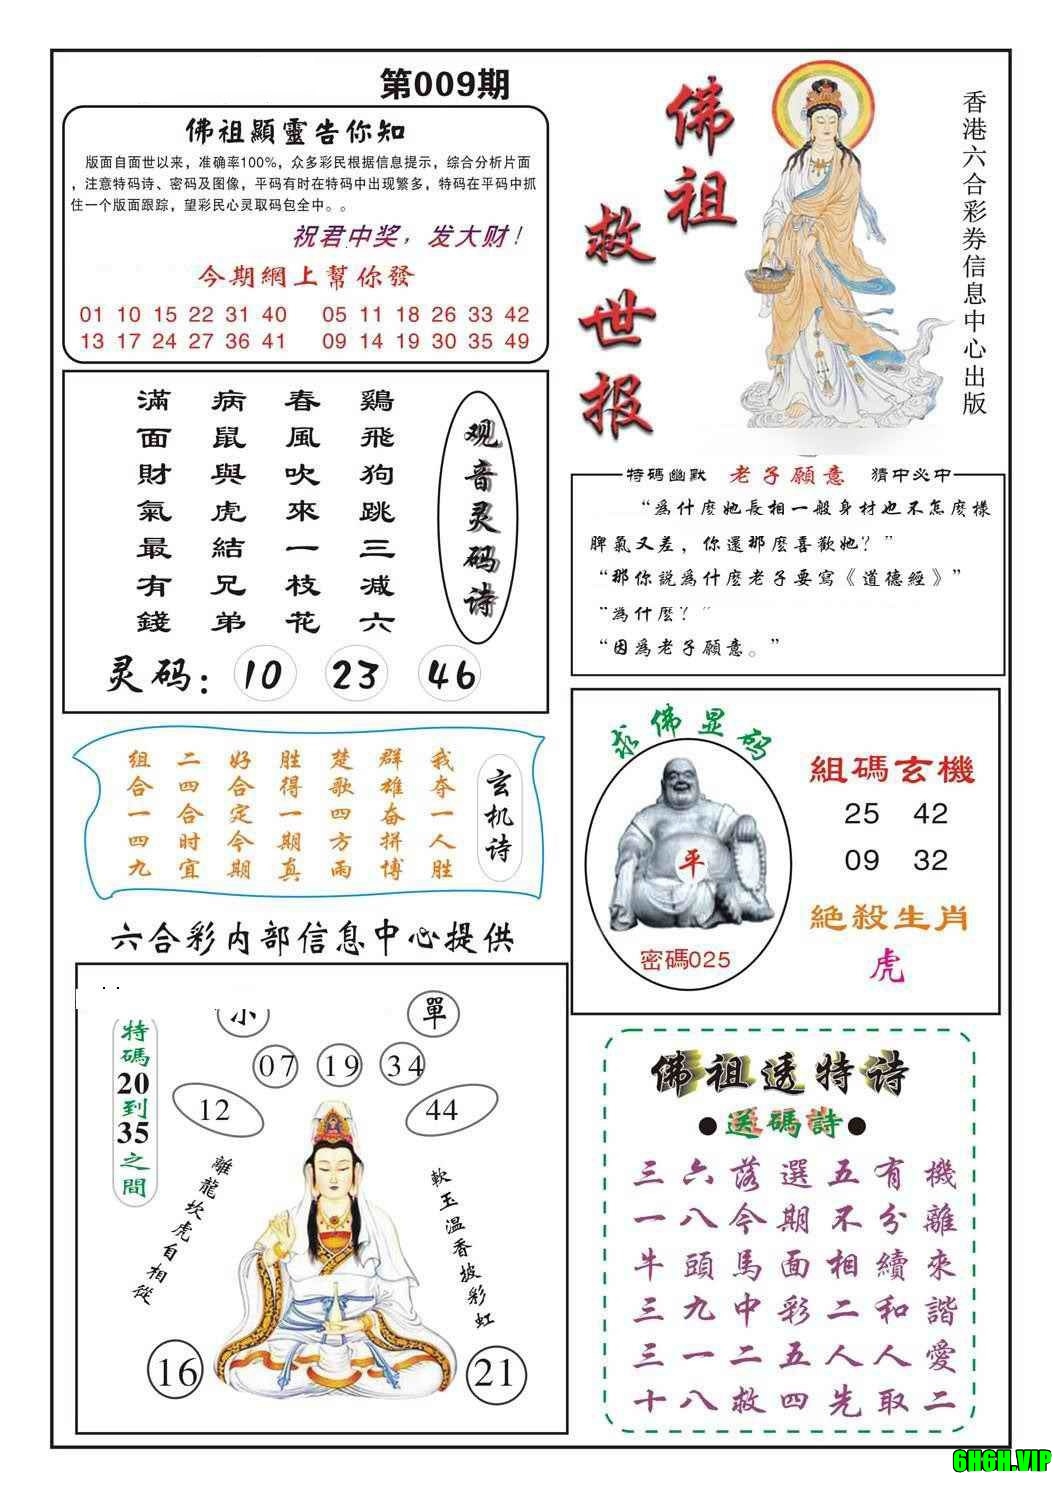 第009期
佛祖顯靈告你知
版面自面世以来，准确率100%，众多彩民根据信息提示，综合分析片面
，注意特码诗、密码及图像，平码有时在特码中出现繁多，特码在平码中抓
住一个版面跟踪，望彩民心灵取码包全中。。
祝君中奖，发大财！
今期網上幫你發
01 10 15 22 31 40 05 11 18 26 33 42
13 17 24 27 36 41 09 14 19 30 35 49
佛祖
救世报
香港六合彩券信息中心出版
观音灵码诗
鷄飛狗跳三减六
春風吹來一枝花
病鼠與虎結兄弟
滿面財氣最有錢
灵码：10 23 46
特碼幽默 老子願意 猜中必中
“為什麽她長相一般身材也不怎麽樣
脾氣又差，你還那麽喜歡她？”
“那你説為什麽老子要寫《道德經》”
“為什麽？”
“因為老子願意。”
玄机诗
我夺一人胜
群雄奋拼博
楚歌四方雨
胜得一期真
好合定今期
二四合时宜
组合一四九
求佛显码
平
密碼025
組碼玄機
25 42
09 32
絶殺生肖
虎
六合彩内部信息中心提供
單
07 19 34
12 44
特碼20到35之間
離龍坎虎自相從
軟玉温香披彩虹
16 21
佛祖透特诗
●送碼詩●
三六落選五有機
一八今期不分離
牛頭馬面相續來
三九中彩二和諧
三一二五人人愛
十八救四先取二
6H6H.VIP